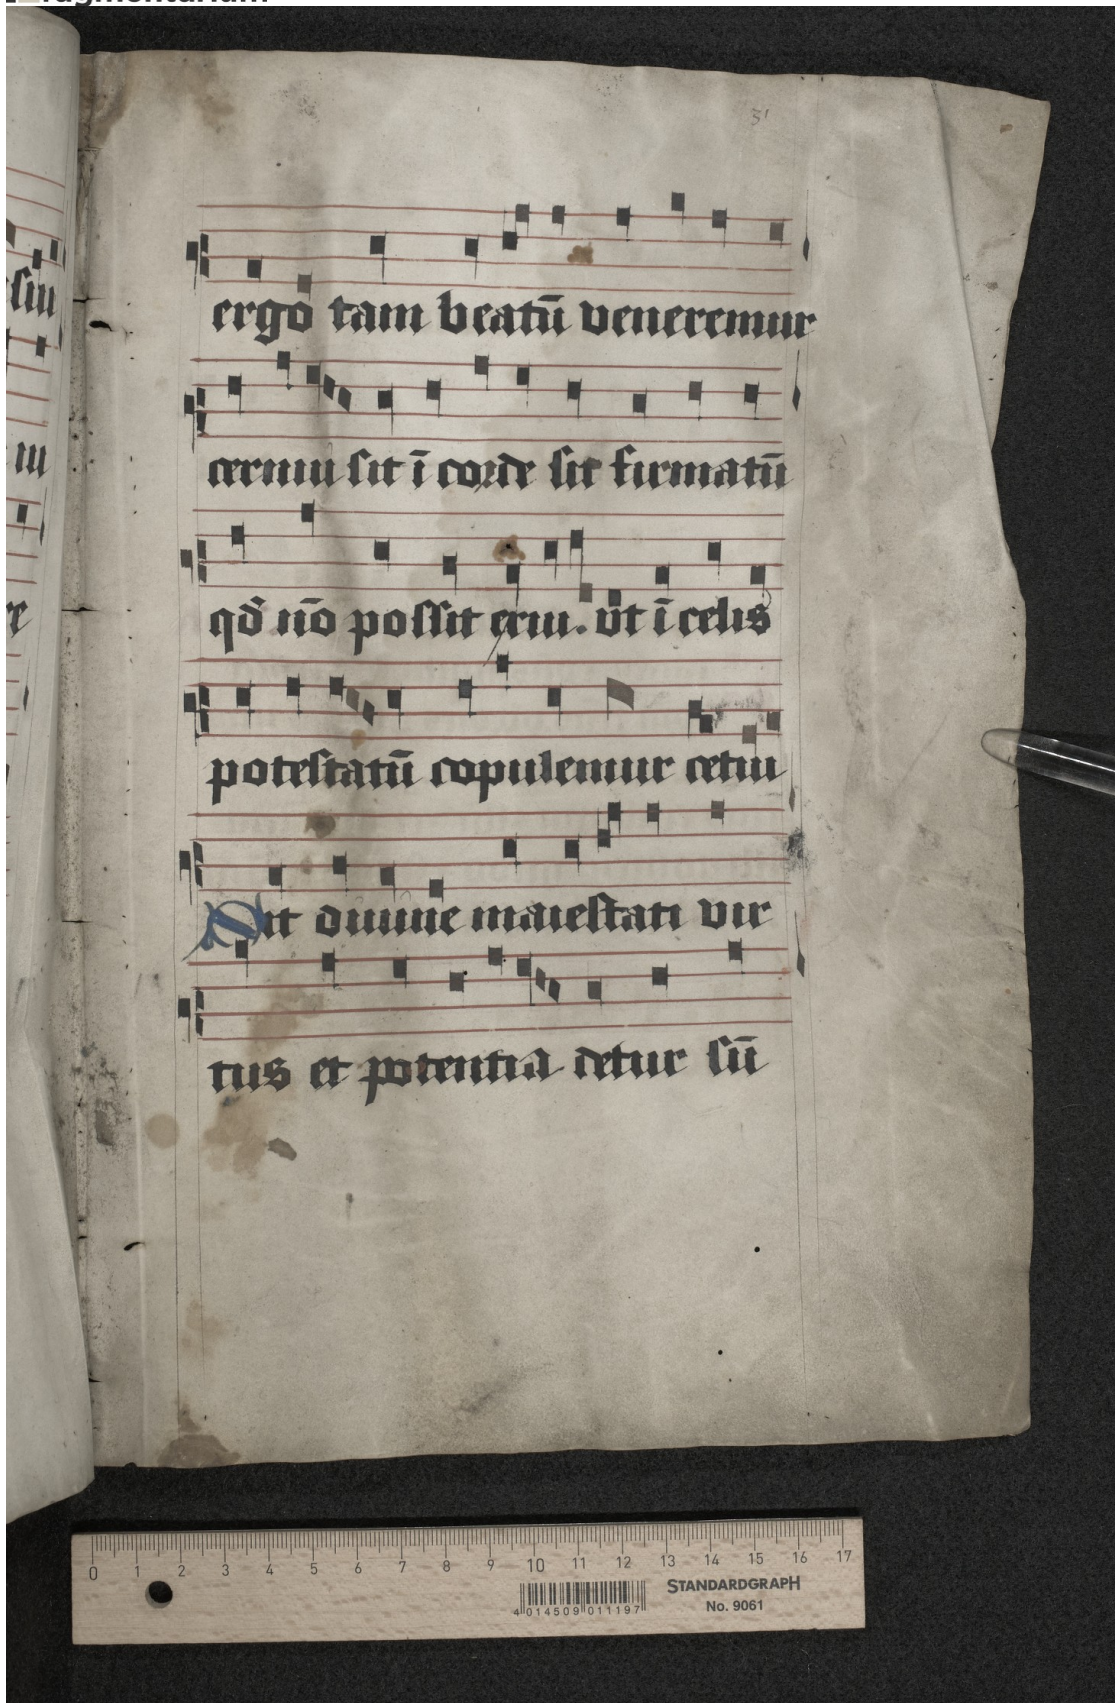 31
ergo tam beatū veneremur
cernui sit ī corde sit firmatū
qđ nō possit erui. ut ī celis
potestatū copulemur cetui
Sit diuine maiestati vir
tus et potentia detur sū
0 1 2 3 4 5 6 7 8 9 10 11 12 13 14 15 16 17
STANDARDGRAPH
No. 9061
4 014509 011197